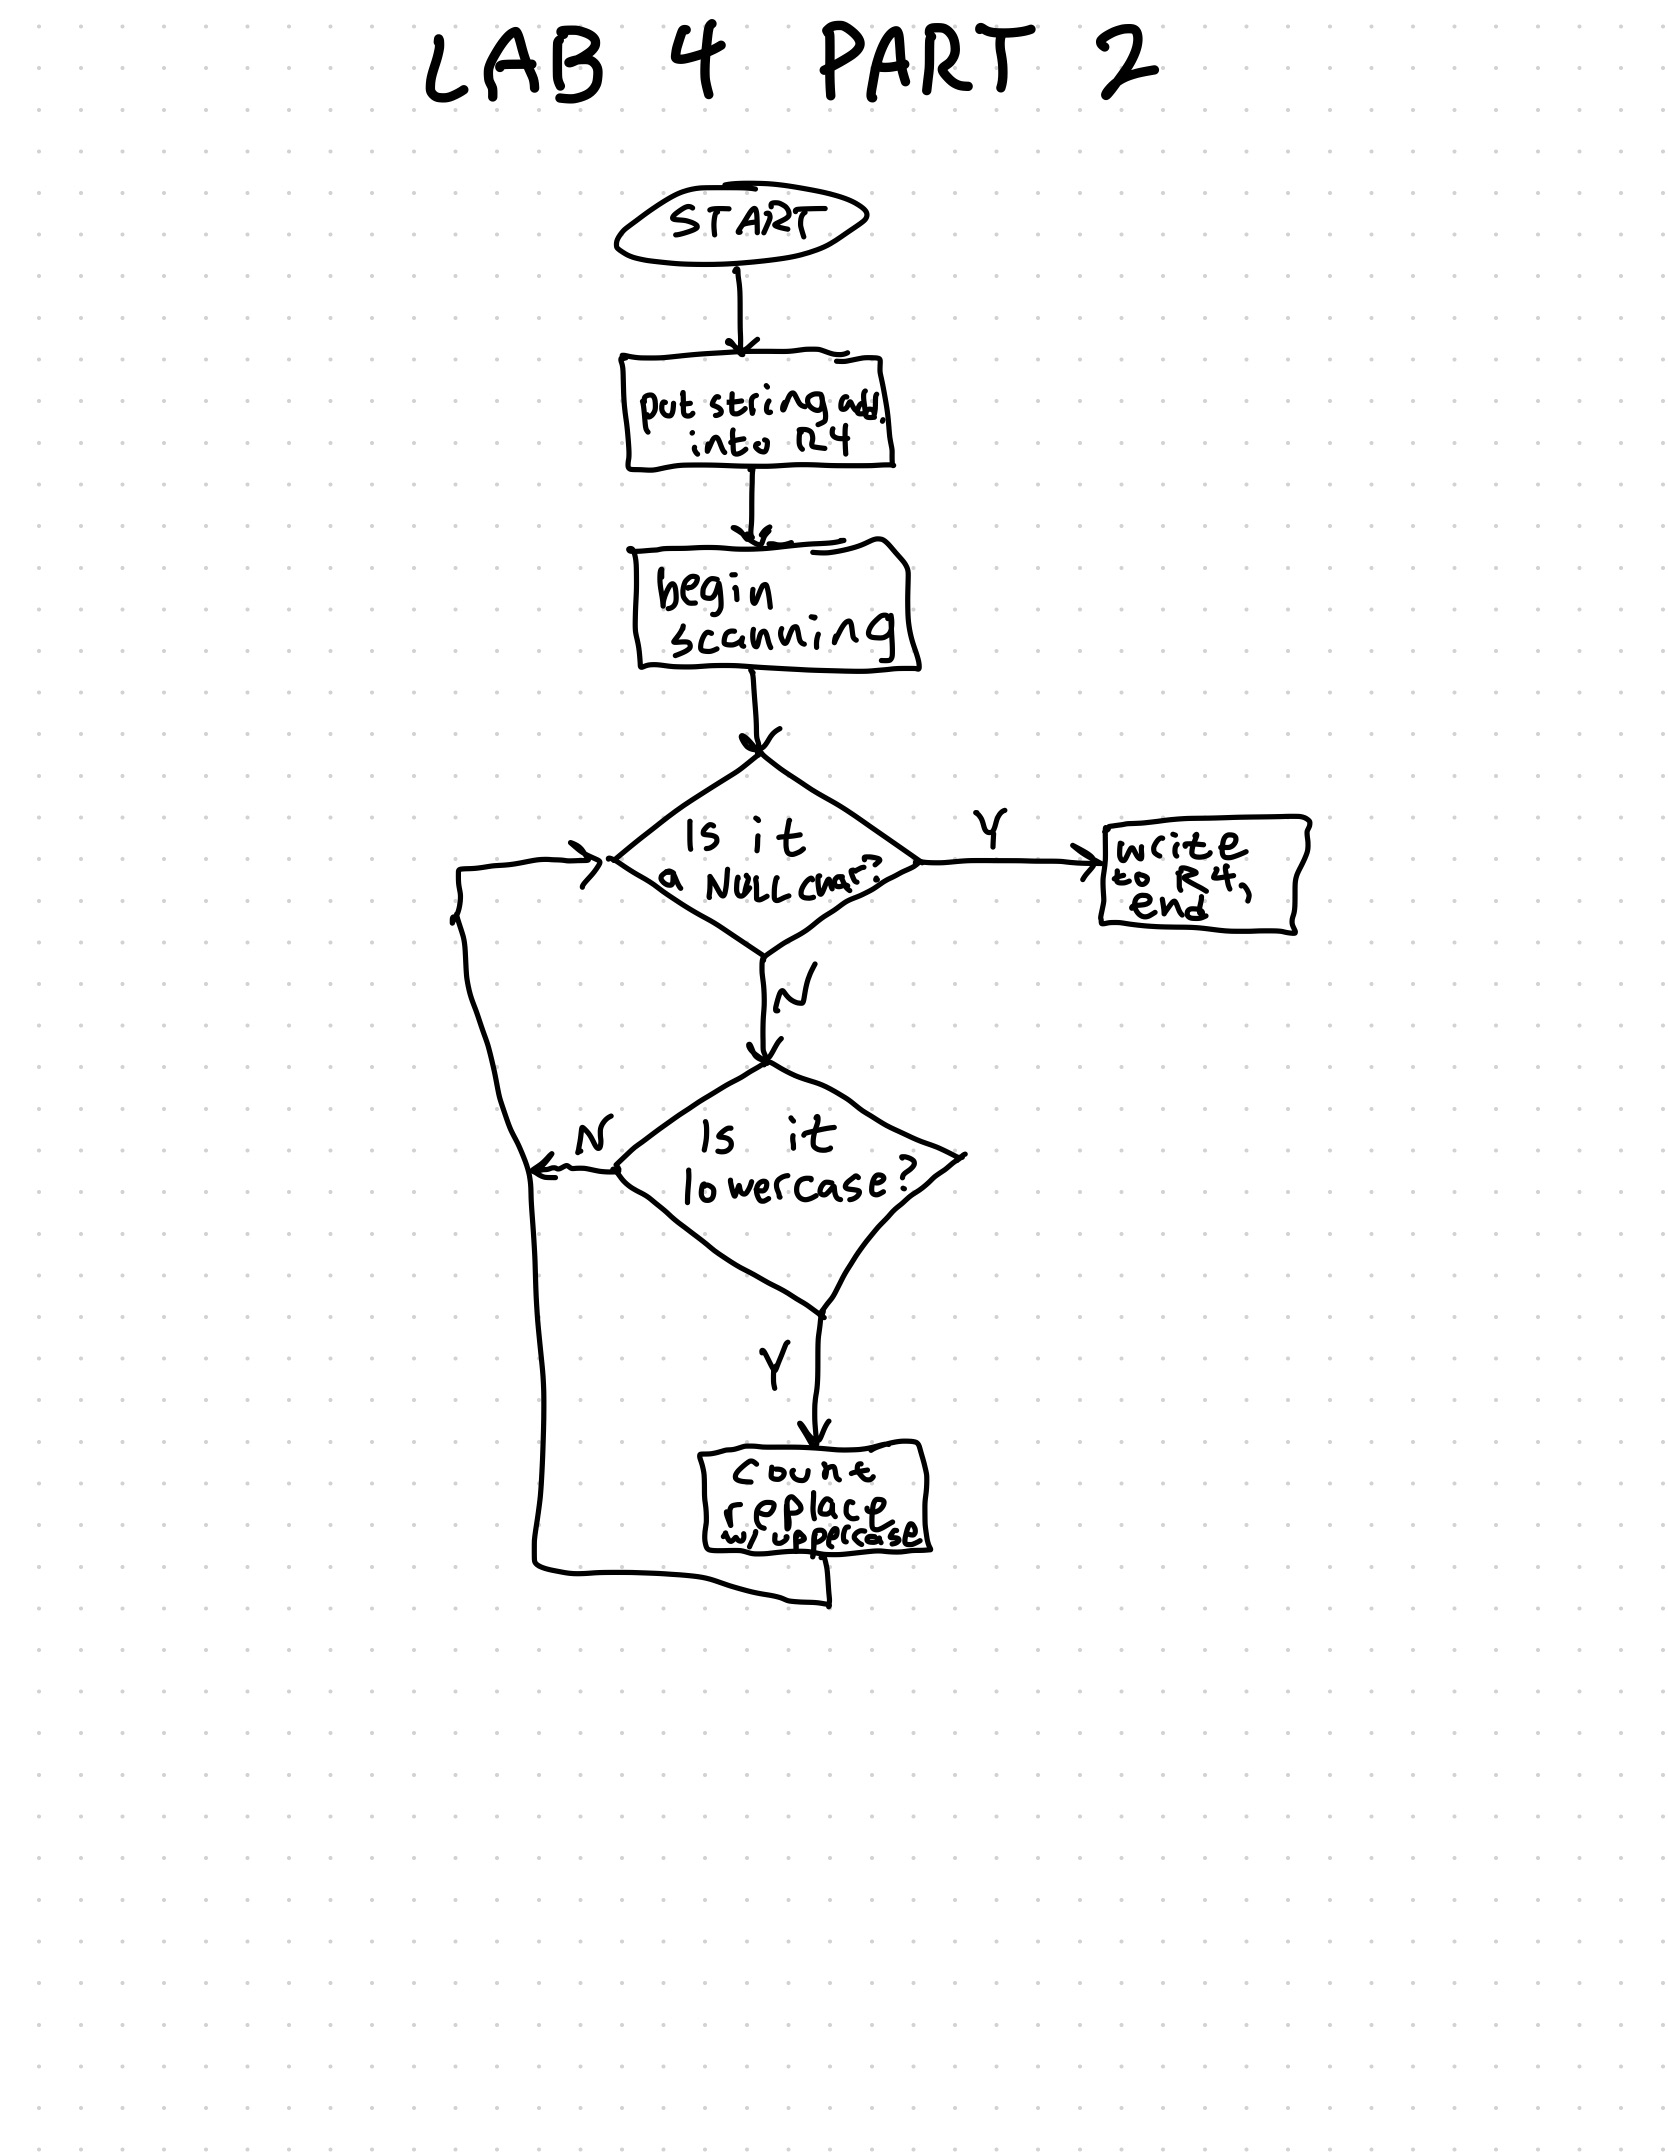 LAB 4 PART 2
START
put string add.
into R4
begin
scanning
Is it
a NULL char?
Y
write
to R4,
end
N
Is it
lowercase?
N
Y
count
replace
w/ uppercase